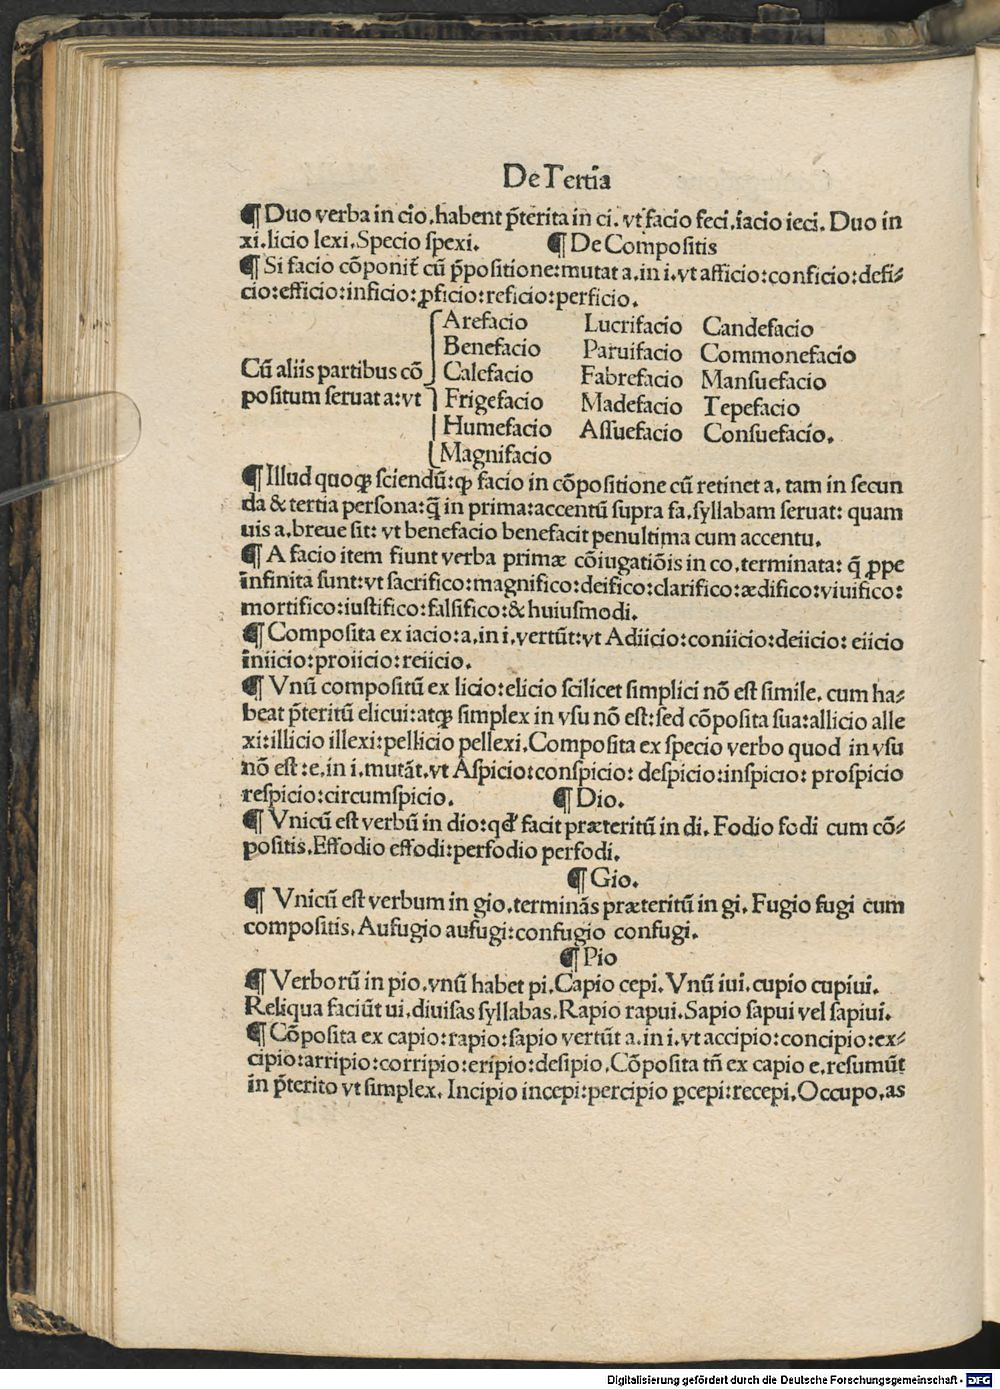 De Tertia
¶ Duo verba in cio.habent p̃terita in ci. vt facio feci.iacio ieci. Duo in
xi.licio lexi.Specio ſpexi. ¶ De Compoſitis
¶ Si facio cõponit᷑ cũ p̃poſitione:mutat a.in i.vt afficio:conficio:defi⸗
cio:efficio:inficio:ꝓficio:reficio:perficio.
Arefacio Lucrifacio Candefacio
Benefacio Paruifacio Commonefacio
Cũ aliis partibus cõ Calefacio Fabrefacio Manſuefacio
poſitum ſeruat a:vt Frigefacio Madefacio Tepefacio
Humefacio Aſſuefacio Conſuefacio.
Magnifacio
¶ Illud quoqꝫ ſciendũ:ꝙ facio in cõpoſitione cũ retinet a. tam in ſecun
da & tertia perſona:q̃ in prima:accentũ ſupra fa.ſyllabam ſeruat: quam
uis a.breue ſit: vt benefacio benefacit penultima cum accentu.
¶ A facio item fiunt verba primæ cõiugatiõis in co.terminata: q̃ ꝓpe
infinita ſunt:vt ſacrifico:magnifico:deifico:clarifico:ædifico:viuifico:
mortifico:iuſtifico:falſifico:& huiuſmodi.
¶ Compoſita ex iacio:a.in i.vertũt:vt Adiicio:coniicio:deiicio: eiicio
iniicio:proiicio:reiicio.
¶ Vnũ compoſitũ ex licio:elicio ſcilicet ſimplici nõ eſt ſimile. cum ha⸗
beat p̃teritũ elicui:atqꝫ ſimplex in vſu nõ eſt:ſed cõpoſita ſua:allicio alle
xi:illicio illexi:pellicio pellexi.Compoſita ex ſpecio verbo quod in vſu
nõ eſt :e.in i.mutãt.vt Aſpicio:conſpicio: deſpicio:inſpicio: proſpicio
reſpicio:circumſpicio. ¶ Dio.
¶ Vnicũ eſt verbũ in dio:qd' facit præteritũ in di. Fodio fodi cum cõ⸗
poſitis.Effodio effodi:perfodio perfodi.
¶ Gio.
¶ Vnicũ eſt verbum in gio.terminãs præteritũ in gi. Fugio fugi cum
compoſitis. Aufugio aufugi:confugio confugi.
¶ Pio
¶ Verborũ in pio.vnũ habet pi.Capio cepi. Vnũ iui.cupio cupiui.
Reliqua faciũt ui.diuiſas ſyllabas.Rapio rapui.Sapio ſapui vel ſapiui.
¶ Cõpoſita ex capio:rapio:ſapio vertũt a.in i.vt accipio:concipio:ex⸗
cipio:arripio:corripio:eripio:deſipio.Cõpoſita tñ ex capio e.reſumũt
in p̃terito vt ſimplex. Incipio incepi:percipio ꝑcepi:recepi.Occupo.as
Digitalisierung gefördert durch die Deutsche Forschungsgemeinschaft - DFG